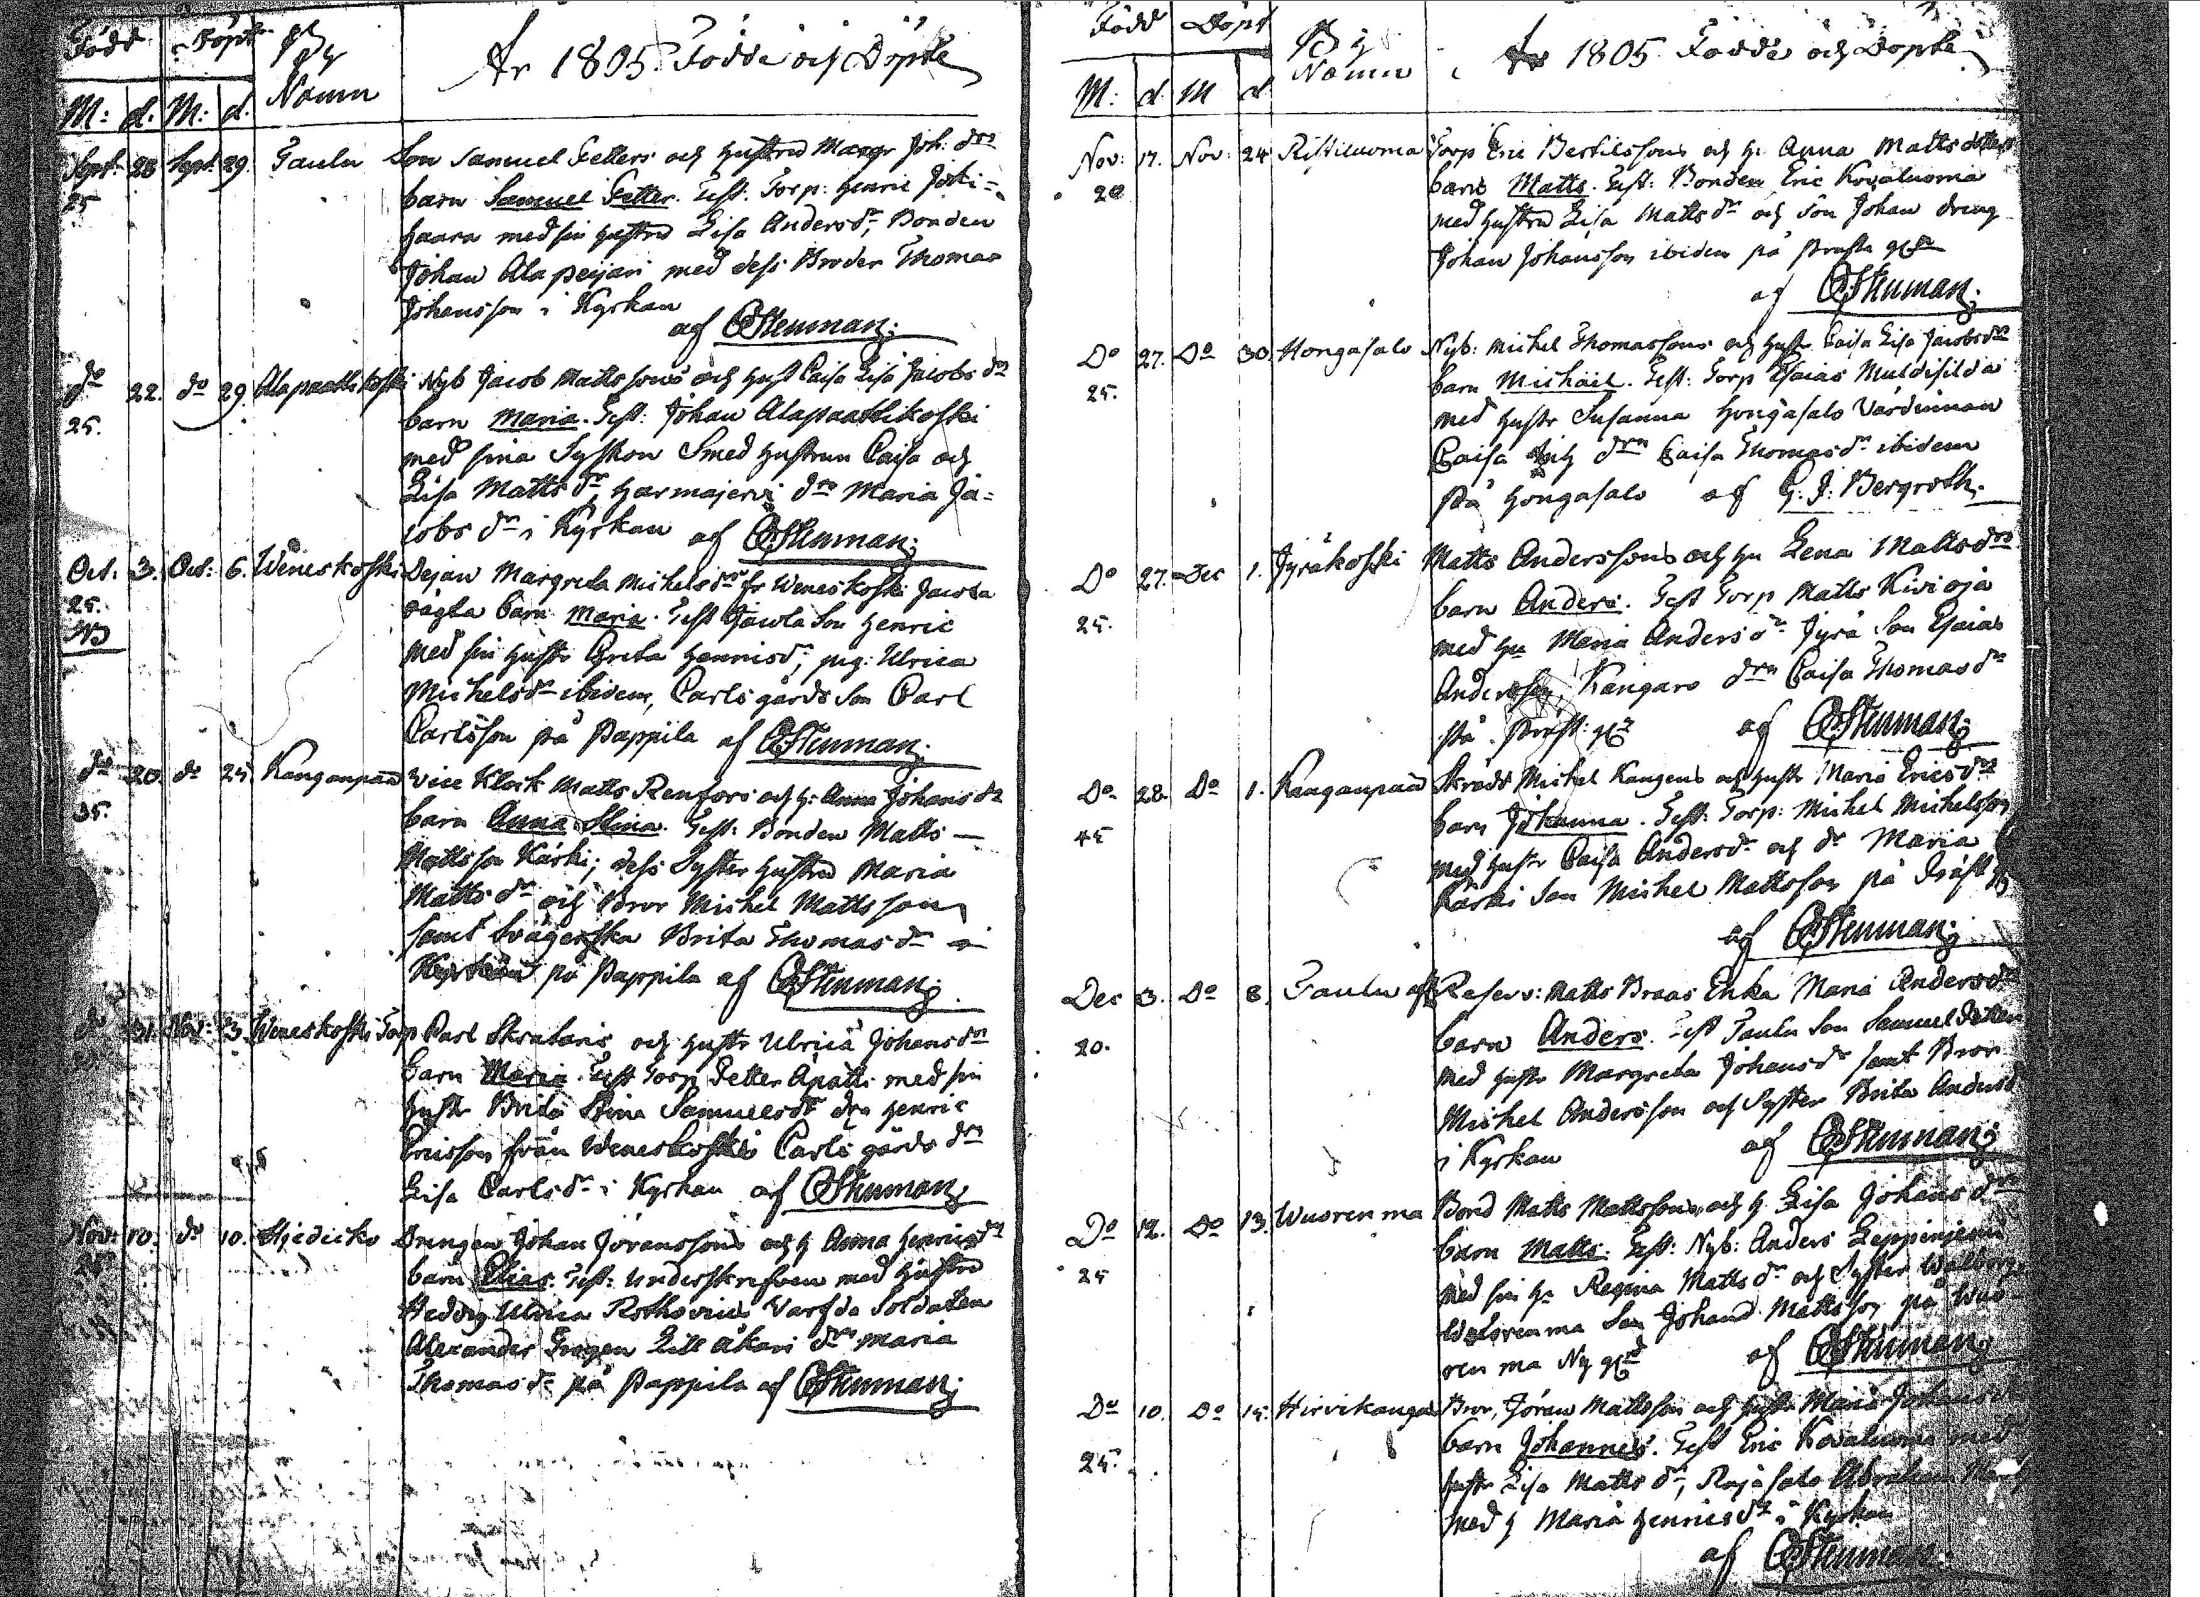 Född Döpt By Namn År 1805. Födde och Döpte
M: d. M: d.
Sept: 28 Sept: 29. Taulu Son Samuel Petters och hustru Margr Joh: drs
25 barn Samuel Petter. Test: Torp: Henric Joki=
haara med sin hustru Lisa Andersdr, Bonden
Johan Alapeijari med dess Broder Thomas
Johansson i Kyrkan
af CStenman.
do 22. do 29. Alapaattikoski Nyb Jacob Mattssons och hust Caisa Lisa Jacobsdrs
25. barn Maria. Test: Johan Alapaattikoski
med sina Syskon Smed hustrun Caisa och
Lisa Mattsdr, Harmajervi drn Maria Ja=
cobsdr i Kyrkan af CStenman.
Oct: 3. Oct: 6. Weneskoski Pejan Margreta Michelsdrs fr Weneskoski Jacola
25. oägta barn Maria. Test Jacola Son Henric
NB med sin hustr Greta Henricsdr, pig: Ulrica
Michelsdr ibidem, Carls gårds Son Carl
Carlsson på Pappila af CStenman.
do 20. do 24 Kanganpää Vice Klock Matts Renfors och h: Anna Johansdrs
35. barn Anna Stina. Test: Bonden Matts
Mattsson Kärki; dess Syster hustru Maria
Mattsdr och Bror Michel Mattsson
samt Svägerska Brita Thomasdr
på Pappila af CStenman.
do 31. Nov: 3. Weneskoski Torp Carl Skratars och hustr Ulrica Johansdrs
barn Maria. Test Torp Petter Apatti med sin
hustr Brita Stina Samuelsdr drn Henric
Ericsson från Weneskoski Carls gårds drn
Lisa Carlsdr i Kyrkan af CStenman.
Nov: 10. do 10. Hjedicko Drengen Johan Joranssons och h Anna Henricsdrs
25 barn Elias. Test: Underskrefven med hustru
Hedvig Ulrica Rothovius Varfda Soldaten
Alexander Trogen Lill åkari drn Maria
Thomasdr på Pappila af CStenman.
Född Döpt By Namn År 1805. Födde och Döpte
M: d. M d
Nov: 17. Nov: 24 Ristiluoma Torp Eric Bertilssons och h: Anna Mattsdotters
20 barn Matts. Test: Bonden Eric Kovaluoma
med hustru Lisa Mattsdr och Son Johan dreng
Johan Johansson ibidem på Prosta
af CStenman.
Do 27. Do 30. Hongasalo Nyb: Michel Thomassons och hustr Caisa Lisa Jacobsdrs
25. barn Michaël. Test: Torp Esaias Muldisilda
med hustr Susanna Hongasalo Värdinnan
Caisa drn Caisa Thomasdr ibidem
På Hongasalo af G. J: Bergroth.
Do 27. Dec 1. Jyräkoski Matts Anderssons och hu Lena Mattsdrs
25. barn Anders. Test Torp Matts Kivioja
med hu Maria Andersdr Jyrä Son Esaias
Andersson, Kangars drn Caisa Thomasdr
På Prost: af CStenman.
Do 28. Do 1. Kanganpää Skradd Michel Kangens och hustr Maria Ericsdrs
45 barn Johanna. Test: Torp: Michel Michelsson
med hustr Caisa Andersdr och dr Maria
Kärki Son Michel Mattsson på
af CStenman.
Dec 3. Do 8. Taulu Reserv: Matts Braas Enka Maria Andersdr
20. barn Anders. Test Taulu Son Samuel Petter
med hustr Margreta Johansdr samt Bror
Michel Andersson och Syster Brita Andersd
i Kyrkan af CStenman.
Do 12. Do 13. Wuorenma Bond Matts Mattssons och h Lisa Johansdrs
25 barn Matts. Test: Nyb: Anders Leppinjemi
med sin hu Regina Mattsdr och Syster Walborg,
Wuorenma Son Johan Mattsson på Wuo
renma Ny af CStenman.
Do 10. Do 15. Hirvikangas Bror, Jöran Mattsson och hustr Maria Johans
25. barn Johannes. Test Eric Kovaluoma med
hustr Lisa Mattsdr, Rajasalo Abraham
med h Maria Henricsdr i Kyrkan
af CStenman.